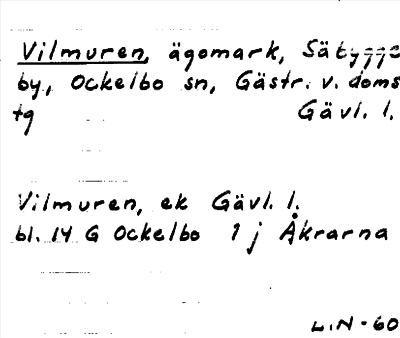 Vilmuren, ägomark, Säbygge
by, Ockelbo sn, Gästr. v. doms
tg Gävl. l.
Vilmuren, ek Gävl. l.
bl. 14 G Ockelbo 1 j Åkrarna
L.N-60